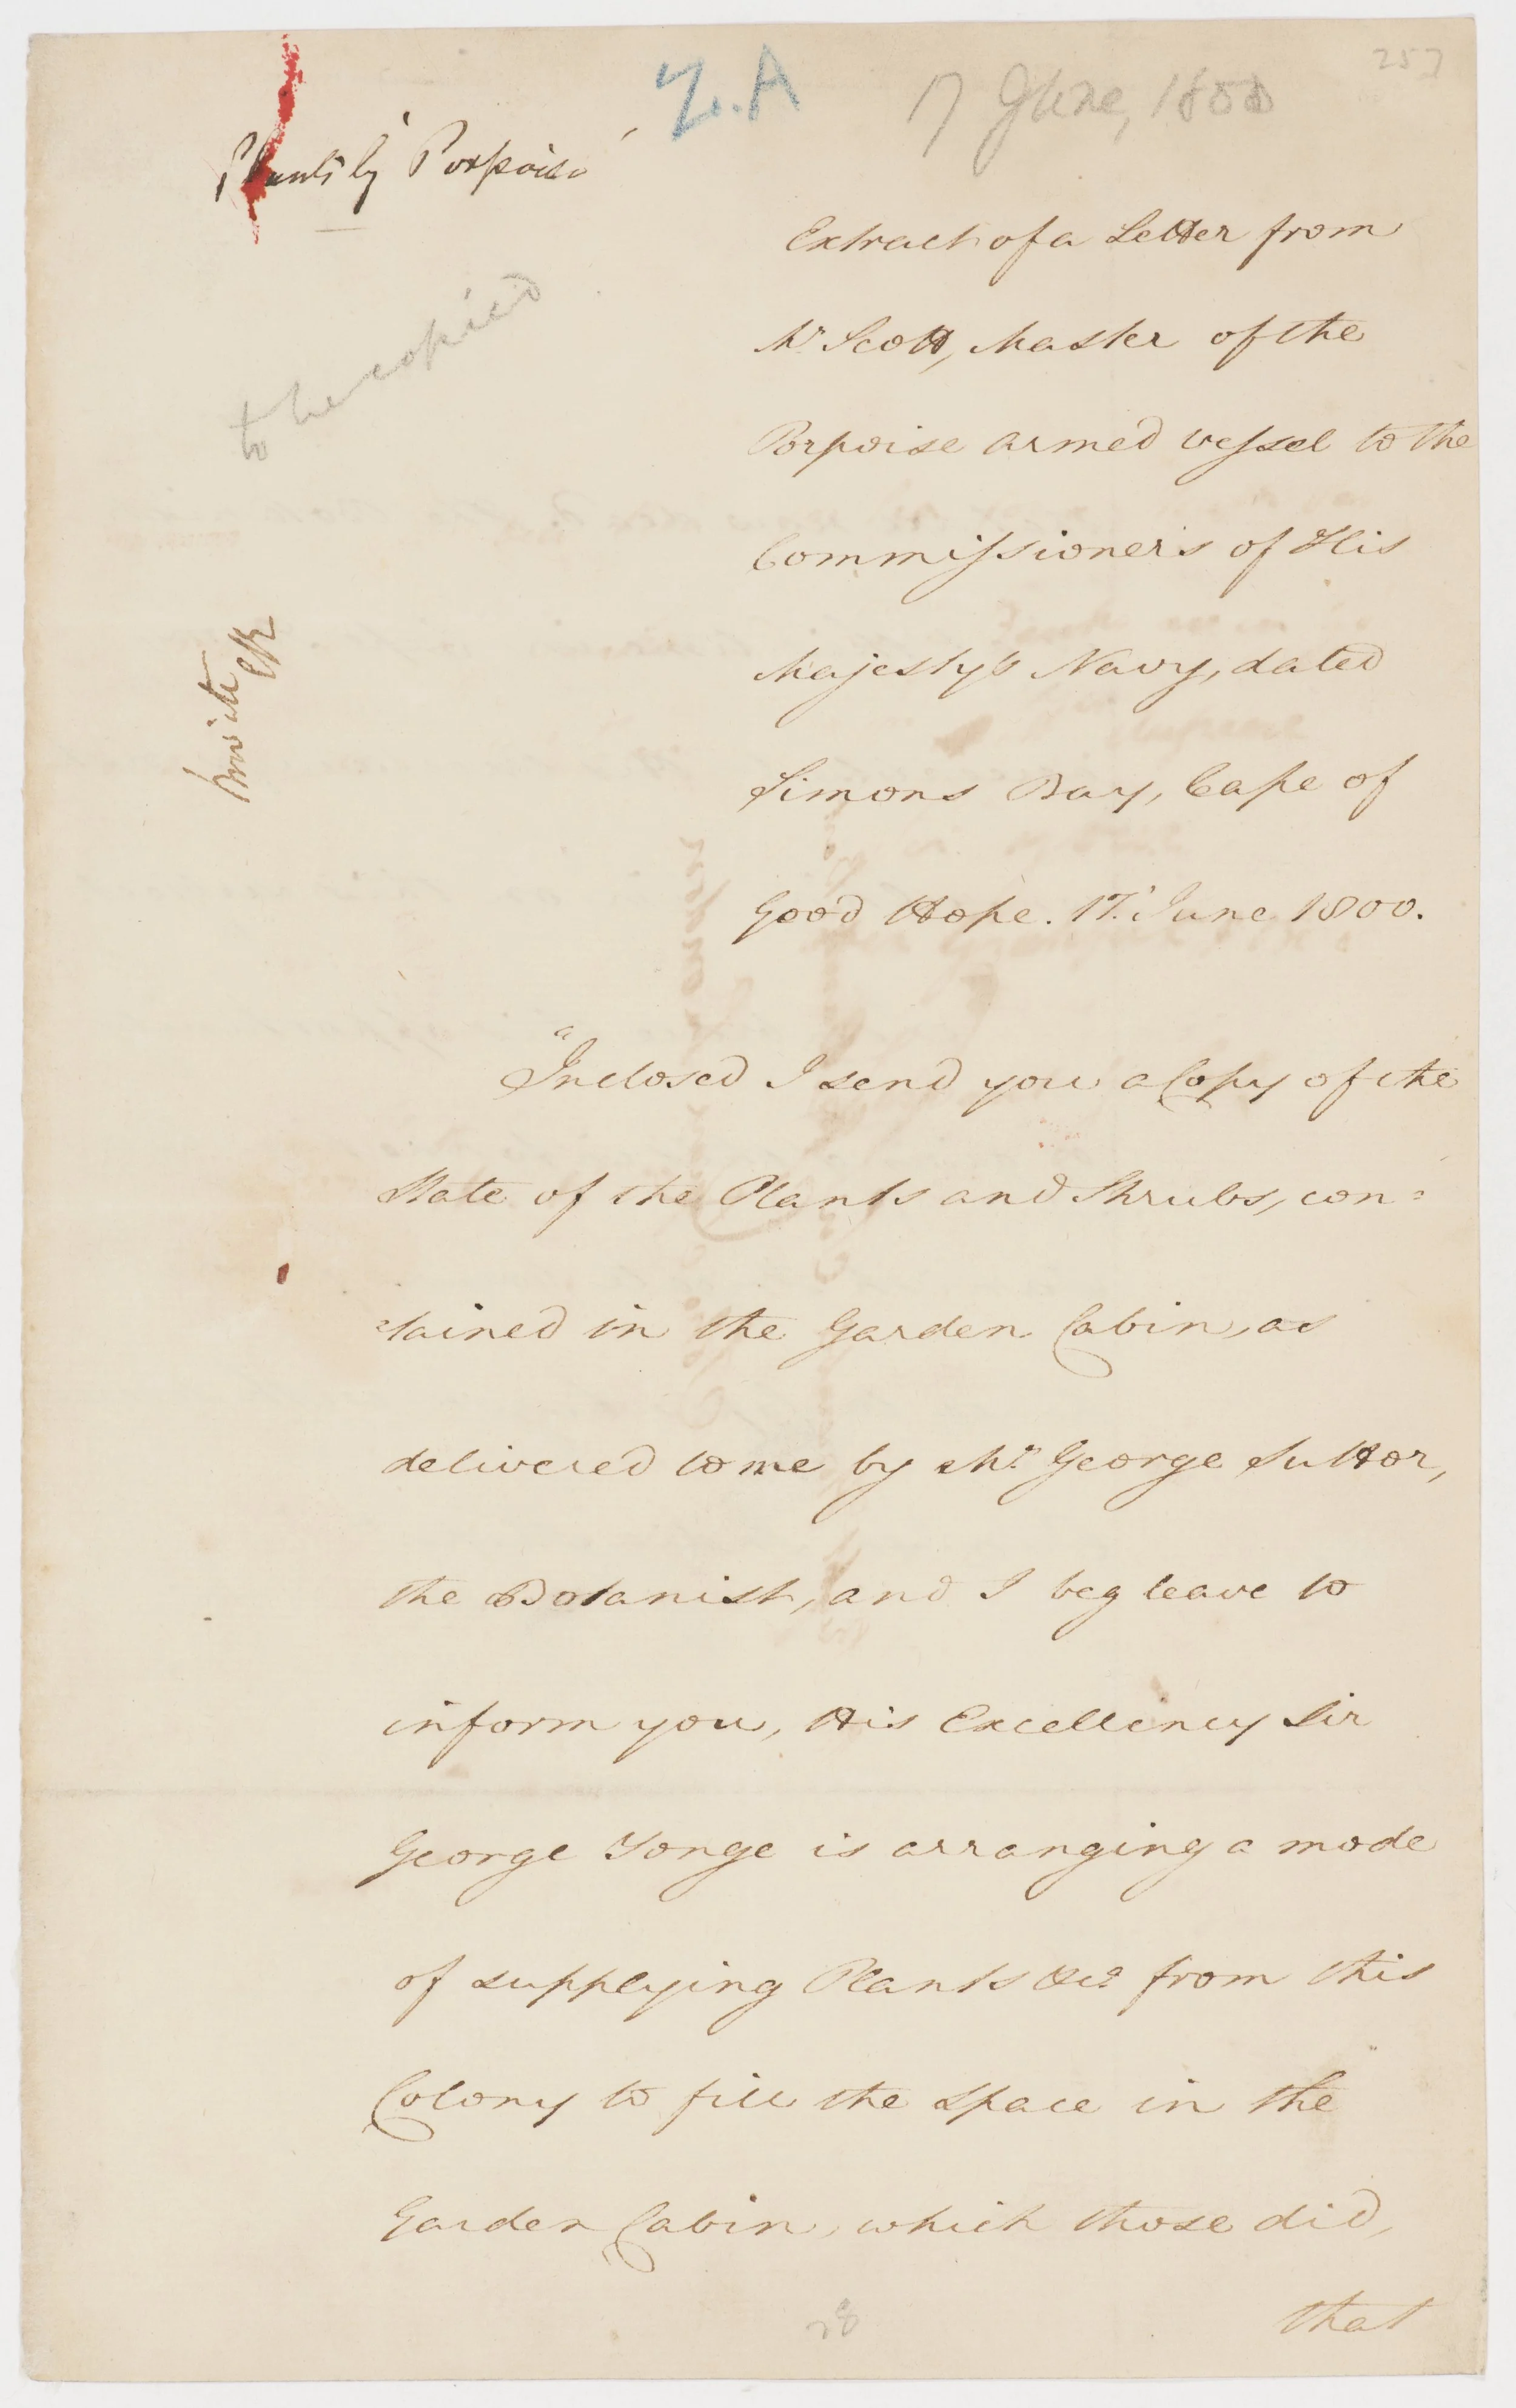 257
Z.A
17 June, 1800
Plants by Porpoise
to be copied
Extract of a Letter from
Mr Scott, Master of the
Porpoise armed vessel to the
Commissioners of His
Majesty's Navy, dated
Simons Bay, Cape of
Good Hope. 17. June 1800.
"Inclosed I send you a Copy of the
State of the Plants and Shrubs, con=
=tained in the Garden Cabin, as
delivered to me by Mr. George Suttor,
the Botanist, and I beg leave to
inform you, His Excellency Sir
George Yonge is arranging a mode
of supplying Plants &c. from this
Colony to fill the space in the
Garden Cabin, which those did,
that
28